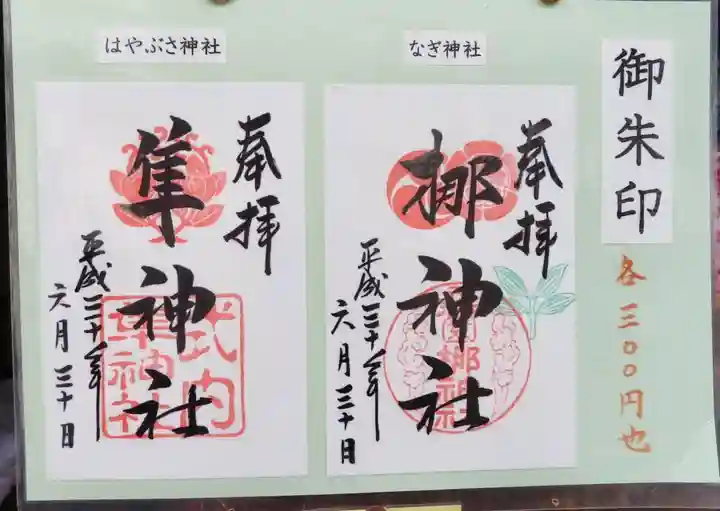 御朱印
各三〇〇円也
なぎ神社
奉拝
梛神社
平成三十年
六月三十日
はやぶさ神社
奉拝
隼神社
式内
隼神社
平成三十年
六月三十日